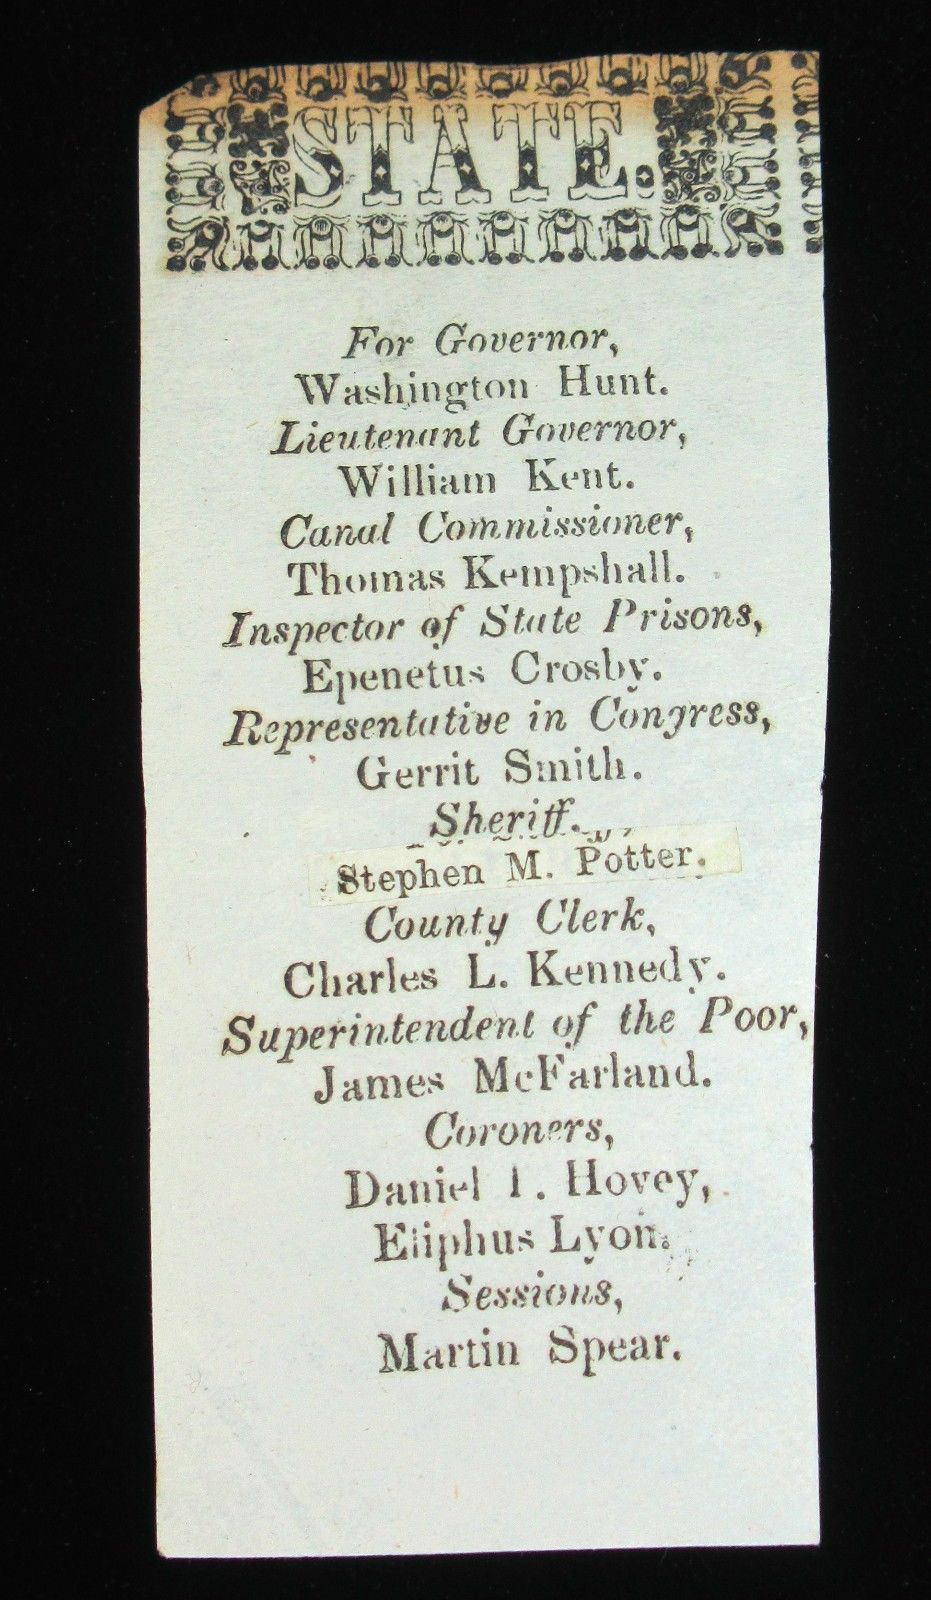 STATE.
For Governor,
Washington Hunt.
Lieutenant Governor,
William Kent.
Canal Commissioner,
Thomas Kempshall.
Inspector of State Prisons,
Epenetus Crosby.
Representative in Congress,
Gerrit Smith.
Sheriff.
Stephen M. Potter.
County Clerk,
Charles L. Kennedy.
Superintendent of the Poor,
James McFarland.
Coroners,
Daniel I. Hovey,
Eliphus Lyon.
Sessions,
Martin Spear.